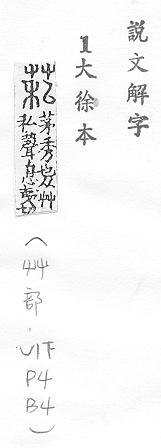 説文解字
1大徐本
茅秀也从艸
私聲息夷切
(艸部.1下
P4
B4)